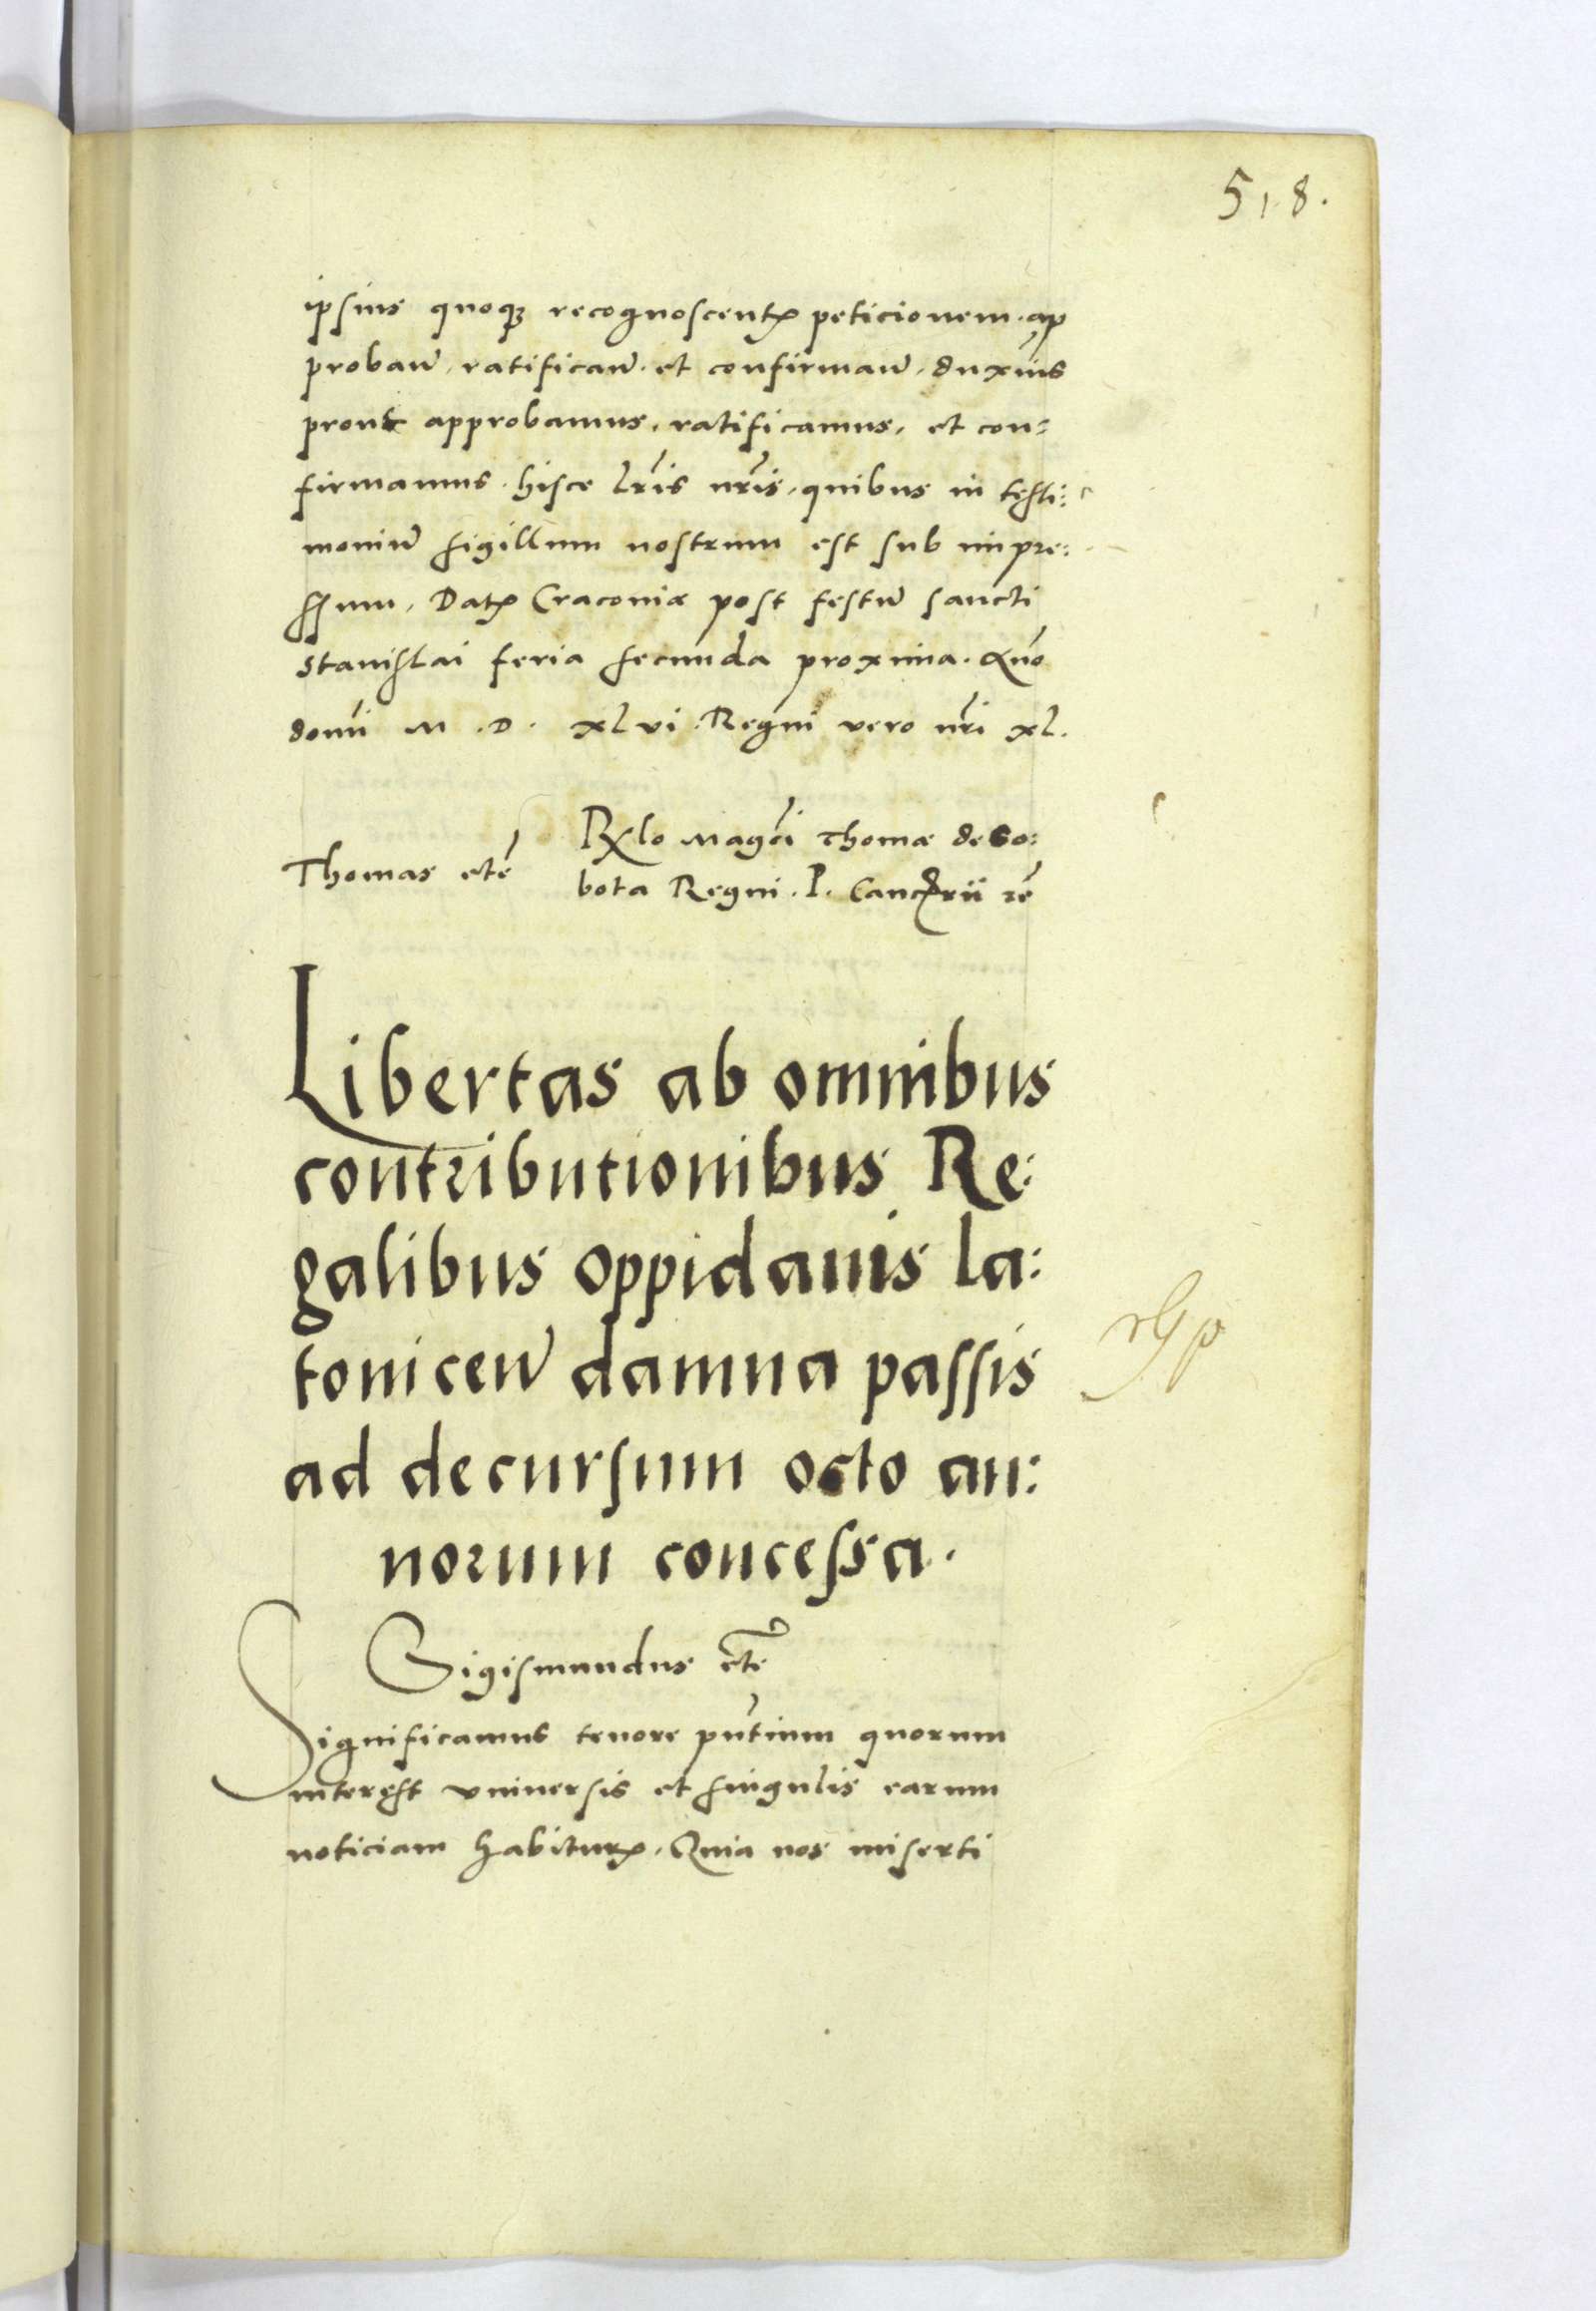 518.
ipsius quoqꝫ recognoscentꝭ peticionem. ap
probañ. ratificañ. et confirmañ. duxim̃s
prout approbamus. ratificamus. et con:
firmamus. hisce lr̃is nr̃is. quibus in testi:
moniũ sigillum nostrum est sub impre:
ssum. Datꝭ Cracoviæ post festũ sancti
Stanislai feria secunda proxima. Año
dom̃i M. D. xlvi. Regni vero nr̃i xl.
Thomas etc̃
Rl̃o Magc̃i Thomæ de So:
bota Regni. P. Cancell̃rii rc̃
Libertas ab omnibus
contributionibus Re:
galibus oppidanis la:
toniceñ damna passis
ad decursum octo an:
norum concessa.
Sigismundus etc̃
Significamus tenore pñtium quorum
interest universis et singulis earum
noticiam habiturꝭ. Quia nos miserti